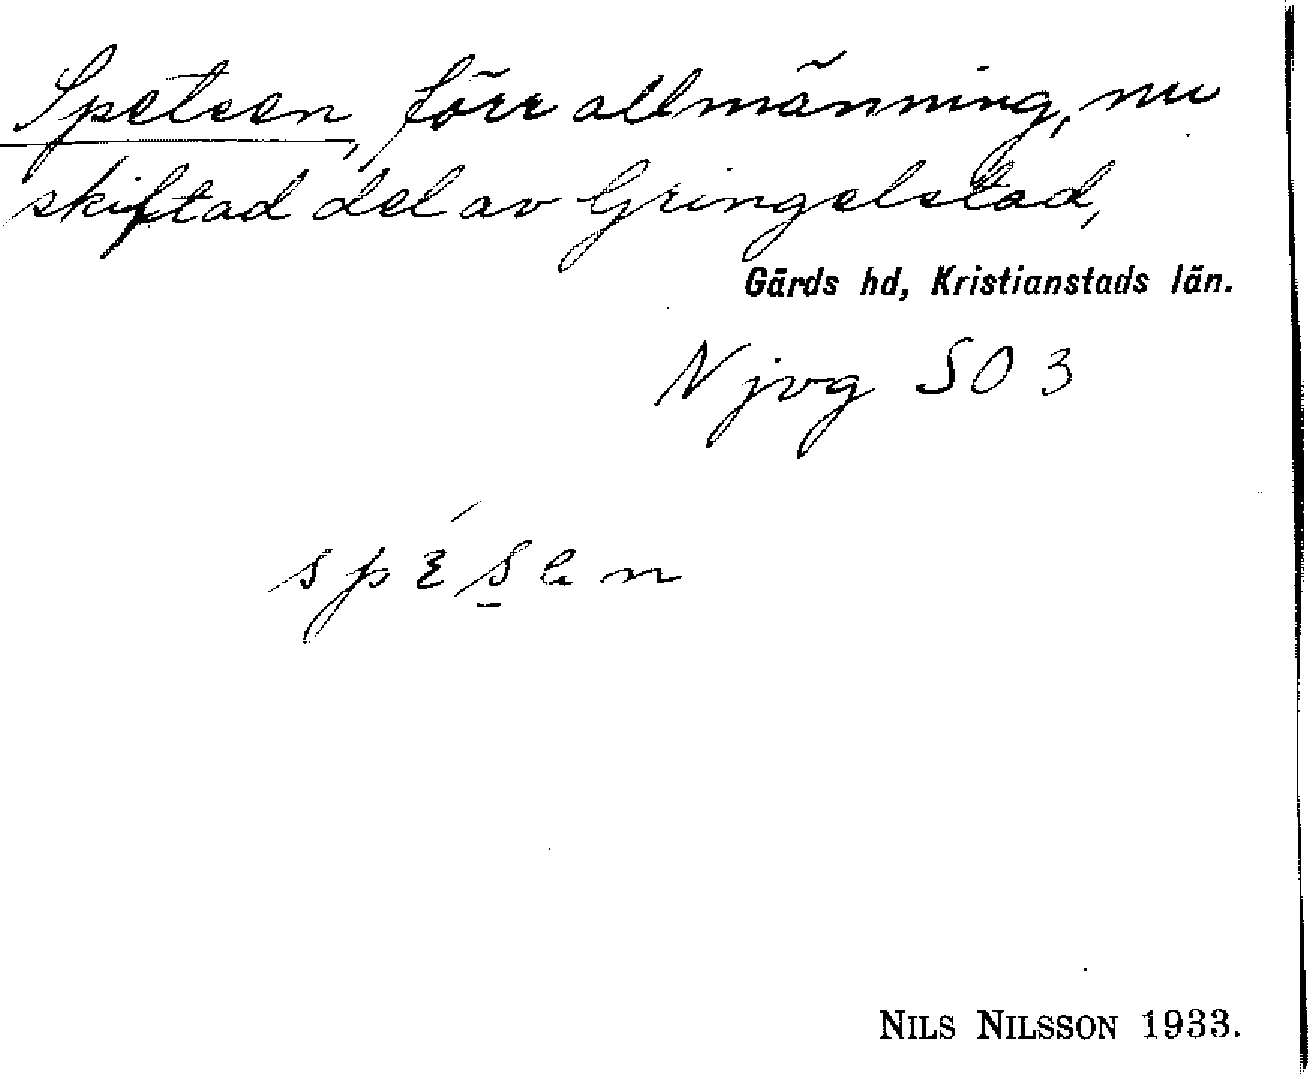 Spetsen, förr allmänning, nu
skiftad del av Gringelstad,
Gärds hd, Kristianstads län.
N jvg SO 3
NILS NILSSON 1933.